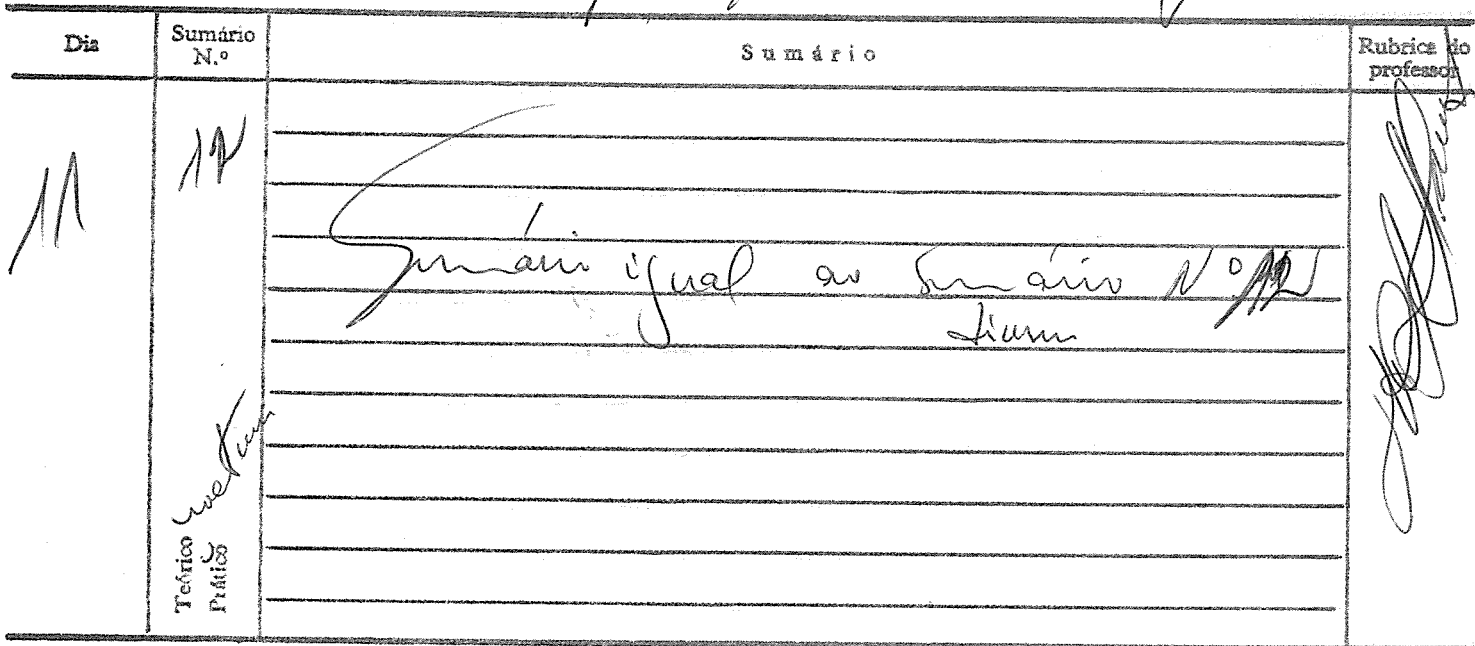 Dia
Sumário
N.º
Sumário
Rubrica do
professor
11
12
Sumário igual ao Sumário Nº 12
diurno
Teórico nocturno
Prático